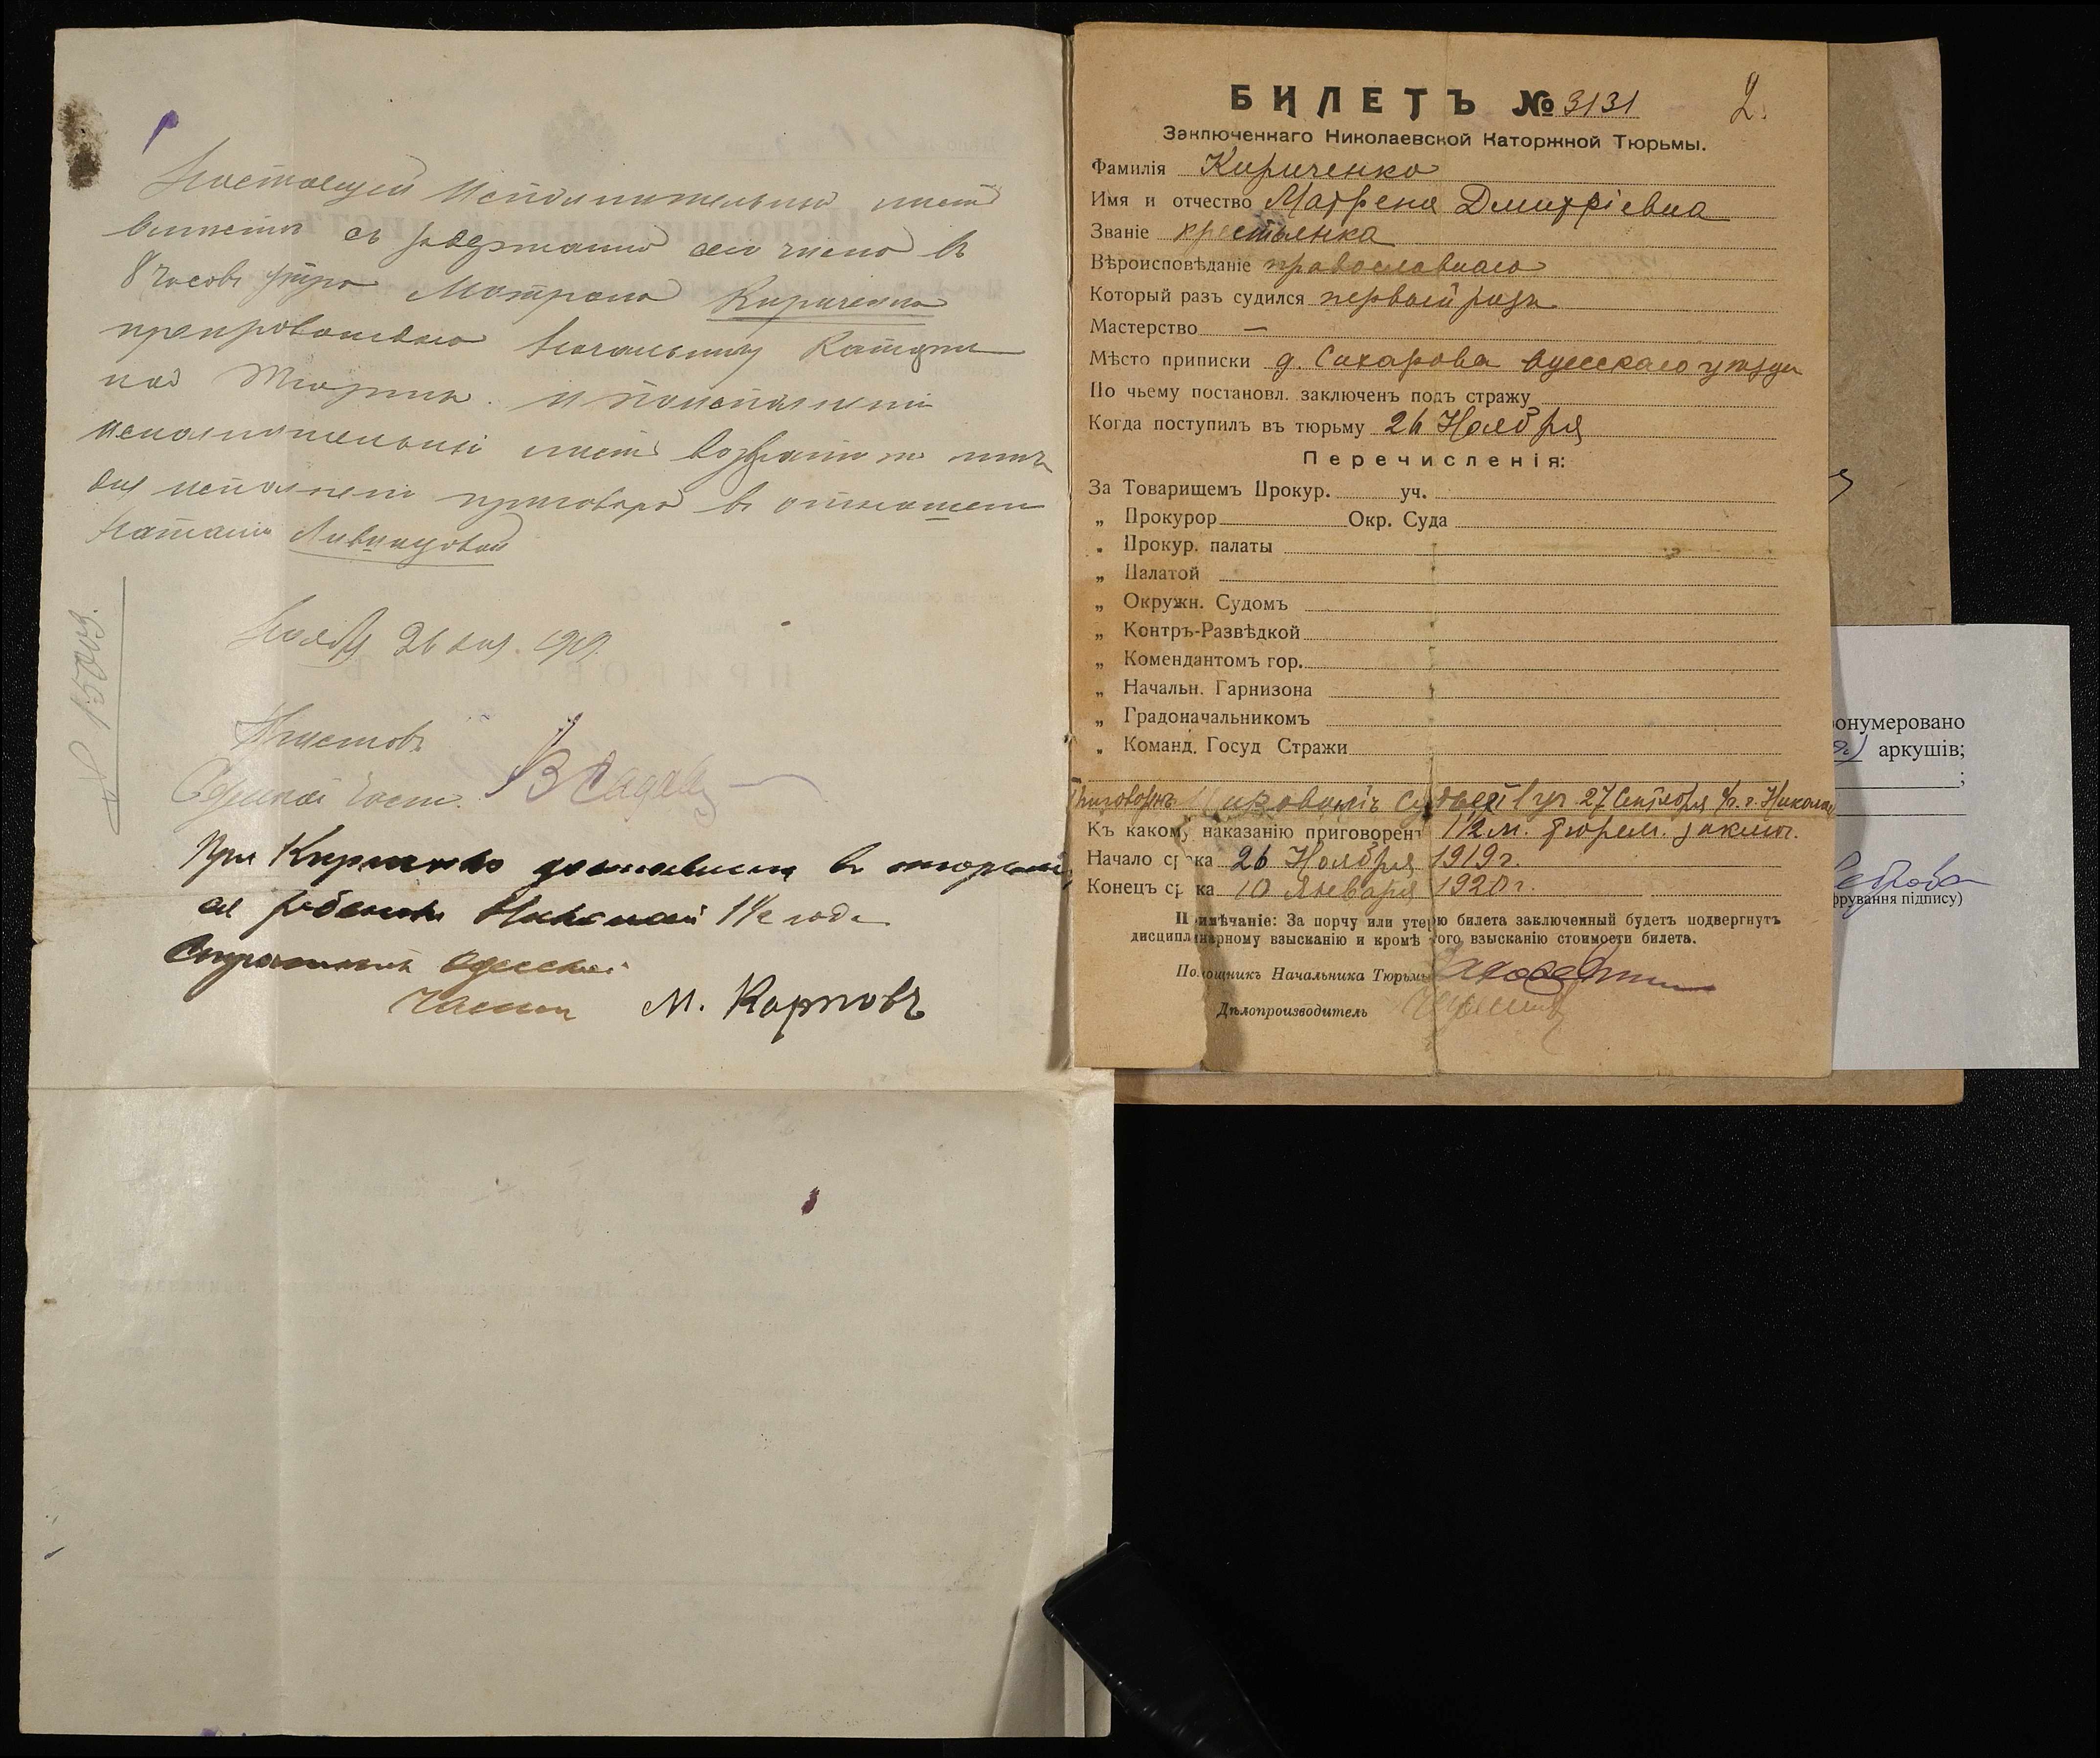 Настоящий Исполнительный лист
вместе съ задержанной сего числа въ
8 часовъ утра Матреной Кириченко
препровождаю Начальнику Каторж
ной Тюрьмы. и по исполнении
исполнительный лист возвратить мнѣ
для исполнения приговора въ отношении
Наталии
Ноября 26 дня 1919.
№ 15003.
Приставъ
Одесской части.
При Кириченко доставлен в тюрьму
ея ребенокъ Николай 1 1/2 года
Одесской
части М. Карповъ
БИЛЕТЪ № 3131
2.
Заключеннаго Николаевской Каторжной Тюрьмы.
Фамилія Кириченко
Имя и отчество Матрена Дмитріевна
Званіе крестьянка
Вѣроисповѣданіе православнаго
Который разъ судился первый разъ
Мастерство —
Мѣсто приписки д. Сахарова Одесскаго уѣзда
По чьему постановл. заключенъ подъ стражу
Когда поступилъ въ тюрьму 26 Ноября
Перечисленія:
За Товарищемъ Прокур. уч.
„ Прокурор Окр. Суда
„ Прокур. палаты
„ Палатой
„ Окружн. Судомъ
„ Контръ-Развѣдкой
„ Комендантомъ гор.
„ Начальн. Гарнизона
„ Градоначальникомъ
„ Команд. Госуд Стражи
Приговоръ Мировымъ Судьей 1 уч. 27 Сентября с/г. г. Николаев
Къ какому наказанію приговоренъ 1 1/2 м. тюрем. заключ.
Начало срока 26 Ноября 1919 г.
Конецъ срока 10 Января 1920 г.
Примѣчаніе: За порчу или утерю билета заключенный будетъ подвергнутъ
дисциплинарному взысканію и кромѣ того взысканію стоимости билета.
Помощникъ Начальника Тюрьмы
Дѣлопроизводитель
онумеровано
аркушів;
;
фрування підпису)